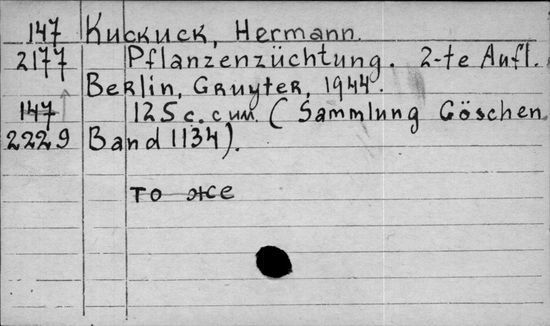 147 Kuckuck, Hermann.
2177 Pflanzenzüchtung. 2-te Aufl.
Berlin, Gruyter, 1944.
147 125 c. с илл. (Sammlung Göschen
2229 Band 1134).
то же